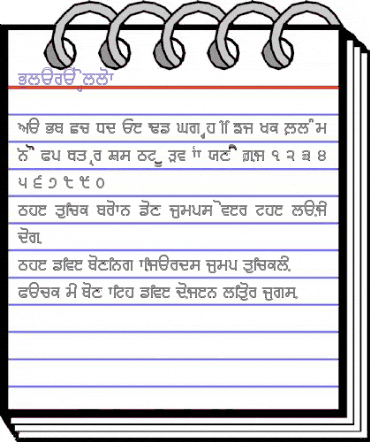 ਭਲਓਰਓੁੱਲਲੋਾ
ਅੳ ਭਬ ਛਚ ਧਦ ਓੲ ਢਡ ਘਗ ੍ਹ ੀਿ ਝਜ ਖਕ ਲ਼ਲ ੰਮ
ਨੋੌ ਫਪ ਥਤ ੍ਰਰ ਸ਼ਸ ਠਟ ੂੁ ੜਵ ਾਂ ਯਣੀੈ ਗ਼ਜ਼ ੧ ੨ ੩ ੪
੫ ੬ ੭ ੮ ੯ ੦
ਠਹੲ ਤੁਚਿਕ ਬਰੋਾਨ ਡੋਣ ਜੁਮਪਸ ੋਵੲਰ ਟਹੲ ਲੳਜ਼ੀ
ਦੋਗ.
ਠਹੲ ਡਵਿੲ ਬੋਣਨਿਗ ਾਜਿੳਰਦਸ ਜੁਮਪ ਤੁਚਿਕਲੀ.
ਫੳਚਕ ਮੀ ਬੋਣ ਾਟਿਹ ਡਵਿੲ ਦੋਜ਼ੲਨ ਲਤਿੁੋਰ ਜੁਗਸ.